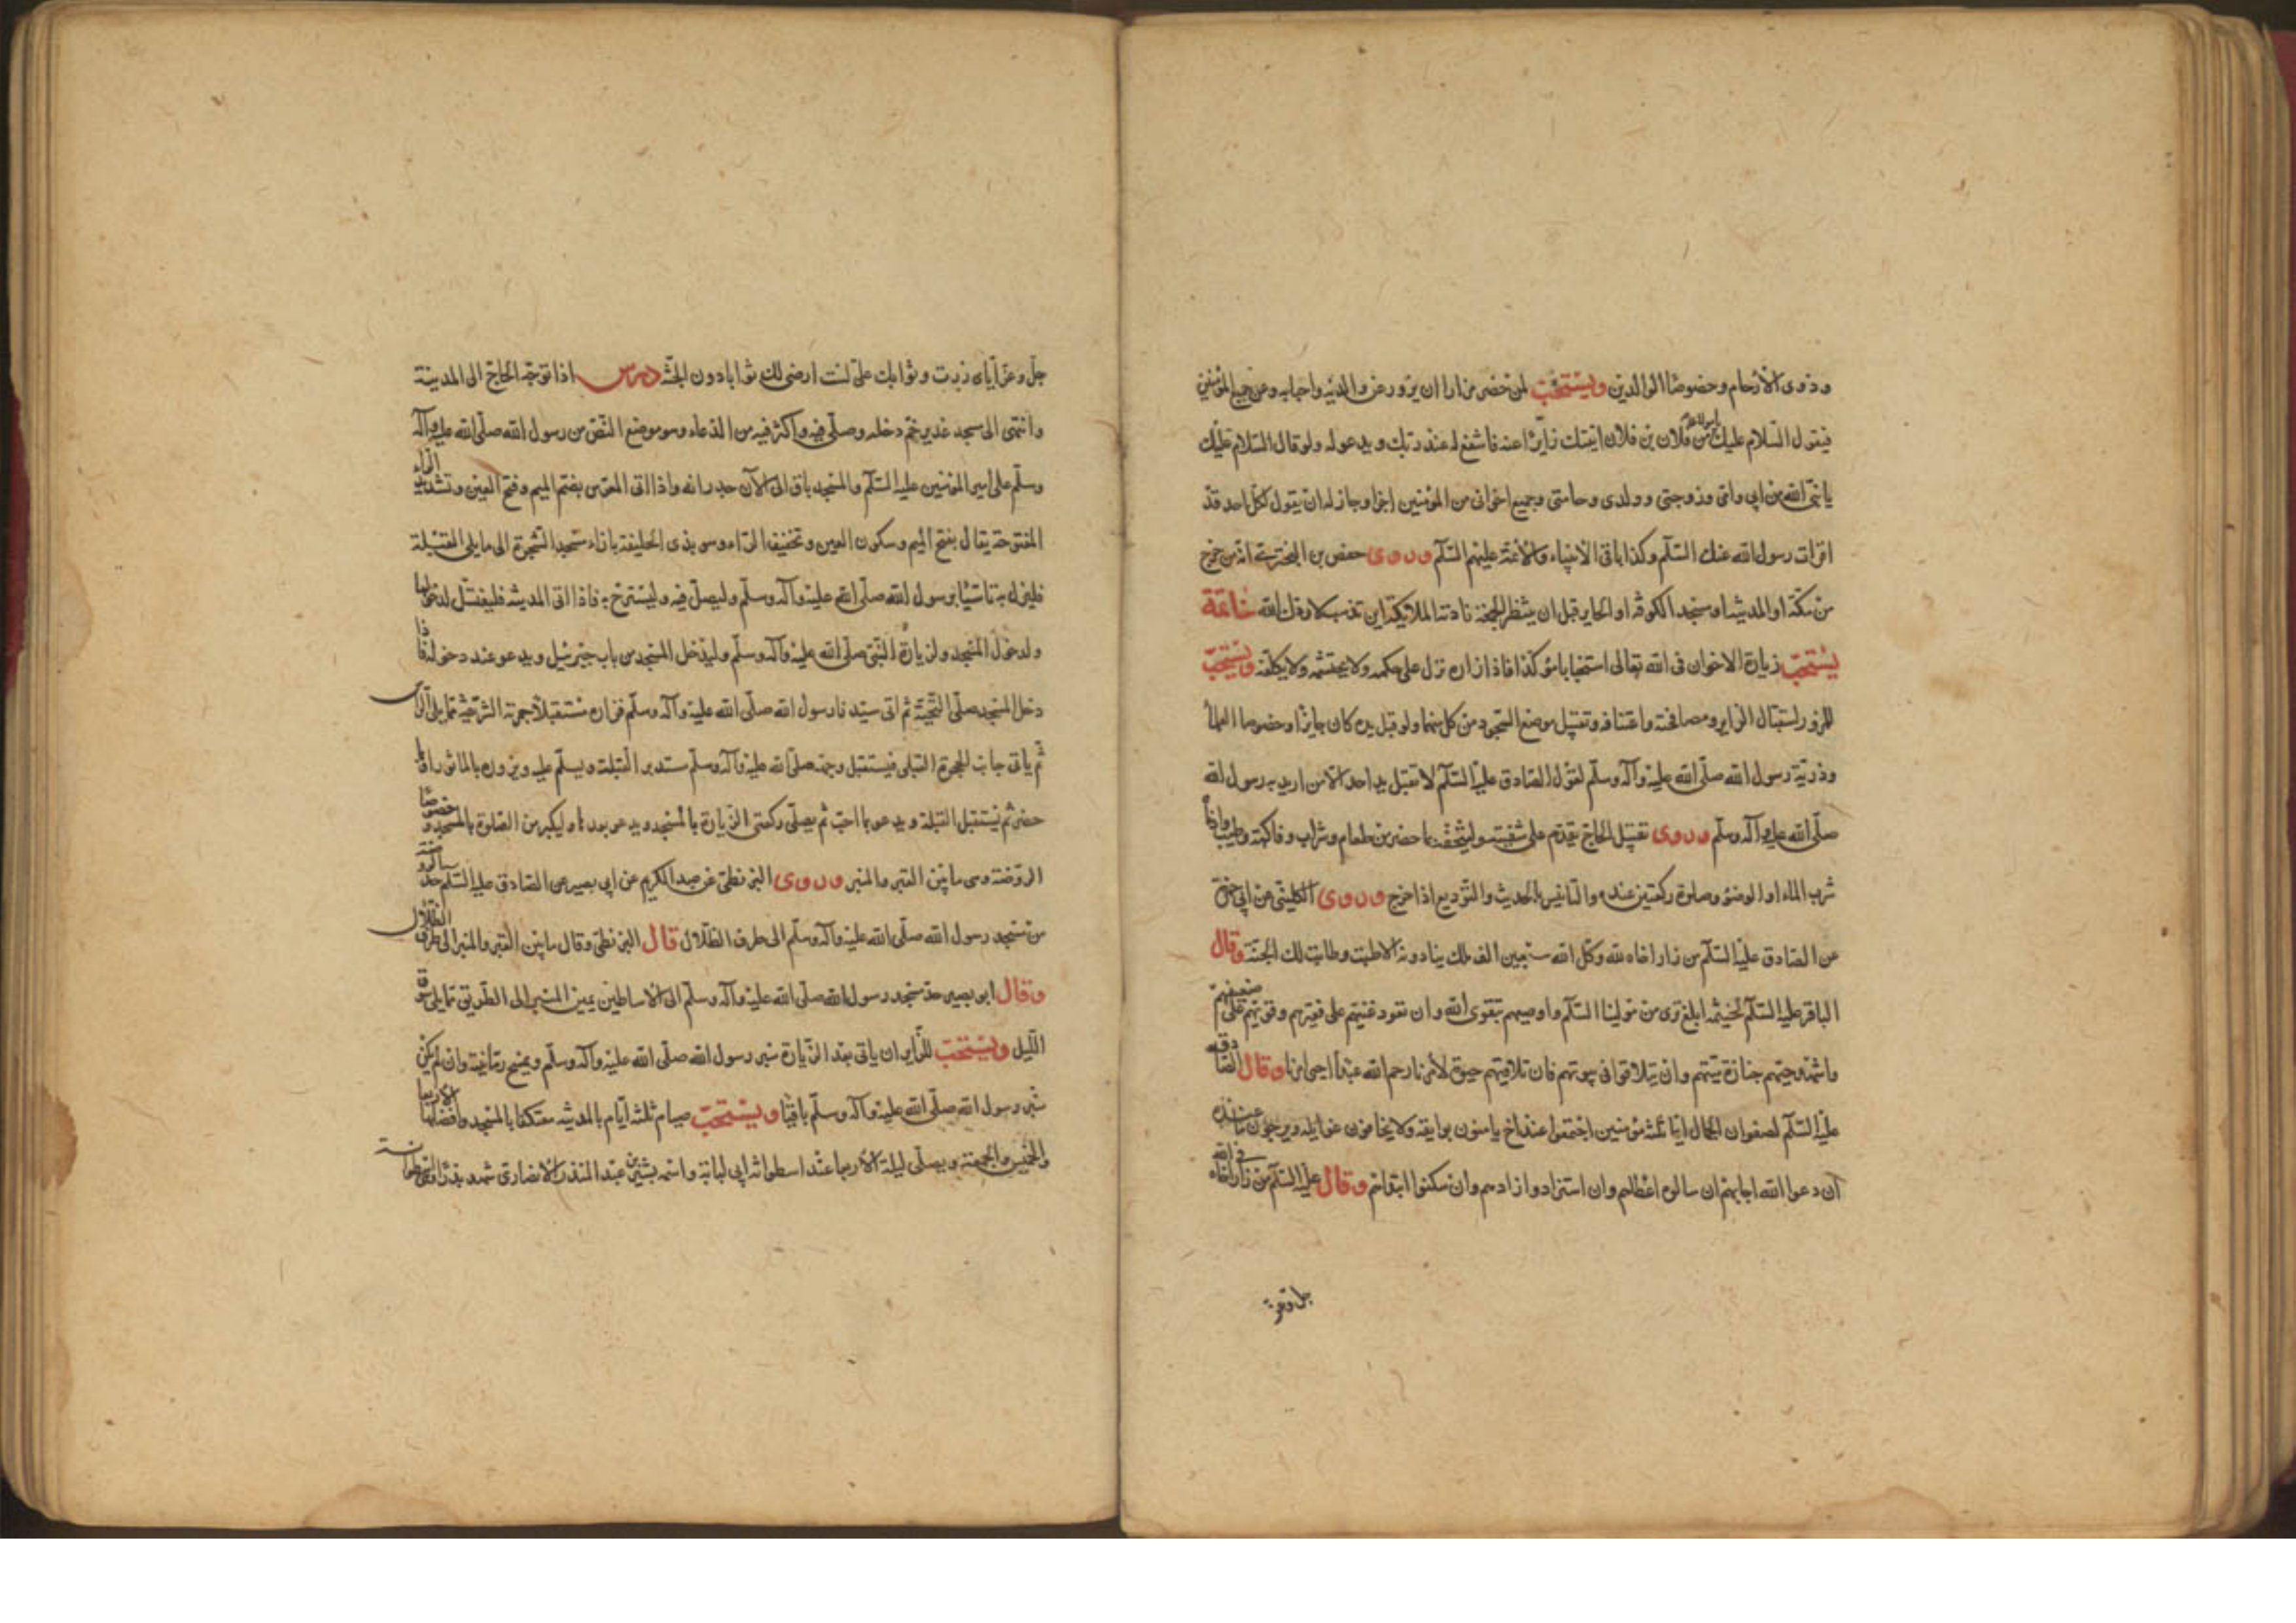 وذوى الأرحام وخصوصا الوالدين ويستحب لمن حضر مزارا ان يزور عن والديه واحبابه وعن جميع المؤمنين
فيقول السلام عليك من فلان بن فلان اتيتك زايرا عنه فاشفع له عند ربك ويدعو له ولو قال السلام عليك
يا نبى الله من ابى وامى وزوجتى وولدى وحامتى وجميع اخوانى من المؤمنين اجزا وجاز له ان يقول لكل احد قد
اقرات رسول الله عنك السلم وكذا باقى الانبياء والائمة عليهم السلم وروى حفص بن البخترى انه من خرج
من مكة او المدينة او مسجد الكوفة او الحاير قبل ان ينتظر الجمعة نادته الملائكة اين تذهب لا ردك الله خاتمة
يستحب زيارة الاخوان فى الله تعالى استحبابا مؤكدا فاذا زاره نزل على حكمه ولا يحتشمه ولا يكلفه ويستحب
للمزور استقبال الزاير ومصافحته واعتناقه وتقبيل موضع السجود من كل منهما ولو قبل يده كان جايزا وخصوصا العلماء
وذرية رسول الله صلى الله عليه وآله وسلم لقول الصادق عليه السلم لا تقبل يد احد الا من اريد به رسول الله
صلى الله عليه وآله وسلم وروى تقبيل الحاج يقدم على شفتيه وليتحفه بما حضر من طعام وشراب وفاكهة وطيب واذا
شرب الماء او الوضوء وصلوة ركعتين عنده والتانيس بالحديث والتوديع اذا خرج وروى الكلينى عن ابى حمزة
عن الصادق عليه السلم من زار اخاه لله وكل الله سبعين الف ملك ينادونه الا طبت وطابت لك الجنة وقال
الباقر عليه السلم لخيثمة ابلغ من ترى من موالينا السلم واوصيهم بتقوى الله وان تعود غنيهم على فقيرهم وقويهم على ضعيفهم
وان يشهد حيهم جنازة ميتهم وان يتلاقوا فى بيوتهم فان تلاقيهم حيوة لأمرنا رحم الله عبدا احيى امرنا وقال الصادق
عليه السلم لصفوان الجمال ايما ثلثة مؤمنين اجتمعوا عند اخ يامنون بوايقه ولا يخافون غوايله ويرجون ما عنده
ان دعوا الله اجابهم ان سالوه اعطاهم وان استزادوا زادهم وان سكتوا ابتداهم وقال عليه السلم من زار اخاه فى الله
جل وعز
جل وعز اياى زرت وثوابك على لست ارضى لك ثوابا دون الجنة درس اذا توجه الحاج الى المدينة
وانتهى الى مسجد غدير خم دخله وصلى فيه واكثر فيه من الدعاء وهو موضع النص من رسول الله صلى الله عليه وآله
وسلم على امير المؤمنين عليه السلم والمسجد باق الى الآن جدرانه واذا اتى المعرس بضم الميم وفتح العين وتشديد الراء
المفتوحة يقال بفتح الميم وسكون العين وتخفيف الراء وهو بذى الحليفة بازاء مسجد الشجرة الى ما يلى القبلة
فلينزل به تاسيا برسول الله صلى الله عليه وآله وسلم وليصل فيه وليسترح به فاذا اتى المدينة فليغتسل لدخولها
ولدخول المسجد ولزيارة النبى صلى الله عليه وآله وسلم وليدخل المسجد من باب جبرئيل ويدعو عند دخوله فاذا
دخل المسجد صلى التحية ثم اتى سيدنا رسول الله صلى الله عليه وآله وسلم فزاره مستقبلا حجرته الشريفة مما يلى الراس
ثم ياتى جانب الحجرة القبلى فيستقبل وجهه صلى الله عليه وآله وسلم مستدبر القبلة ويسلم عليه ويزوره بالماثور او بما
حضر ثم يستقبل القبلة ويدعو بما احب ثم يصلى ركعتى الزيارة بالمسجد ويدعو بعدها وليكثر من الصلوة بالمسجد وخصوصا
الروضة وهى ما بين القبر والمنبر وروى البزنطى عن عبد الكريم عن ابى بصير عن الصادق عليه السلم حد الروضة
من مسجد رسول الله صلى الله عليه وآله وسلم الى طرف الظلال قال البزنطى وقال ما بين القبر والمنبر الى طرف الظلال
وقال ابو بصير حد مسجد رسول الله صلى الله عليه وآله وسلم الى الاساطين يمين المنبر الى الطريق مما يلى سوق
الليل ويستحب للزاير ان ياتى بعد الزيارة منبر رسول الله صلى الله عليه وآله وسلم ويمسح رمانتيه وان لم يكن
منبر رسول الله صلى الله عليه وآله وسلم باقيا ويستحب صيام ثلثة ايام بالمدينة معتكفا بالمسجد وافضلها الاربعا
والخميس والجمعة ويصلى ليلة الاربعا عند اسطوانة ابى لبابة واسمه بشير بن عبد المنذر الانصارى شهد بدرا وهى اسطوانة